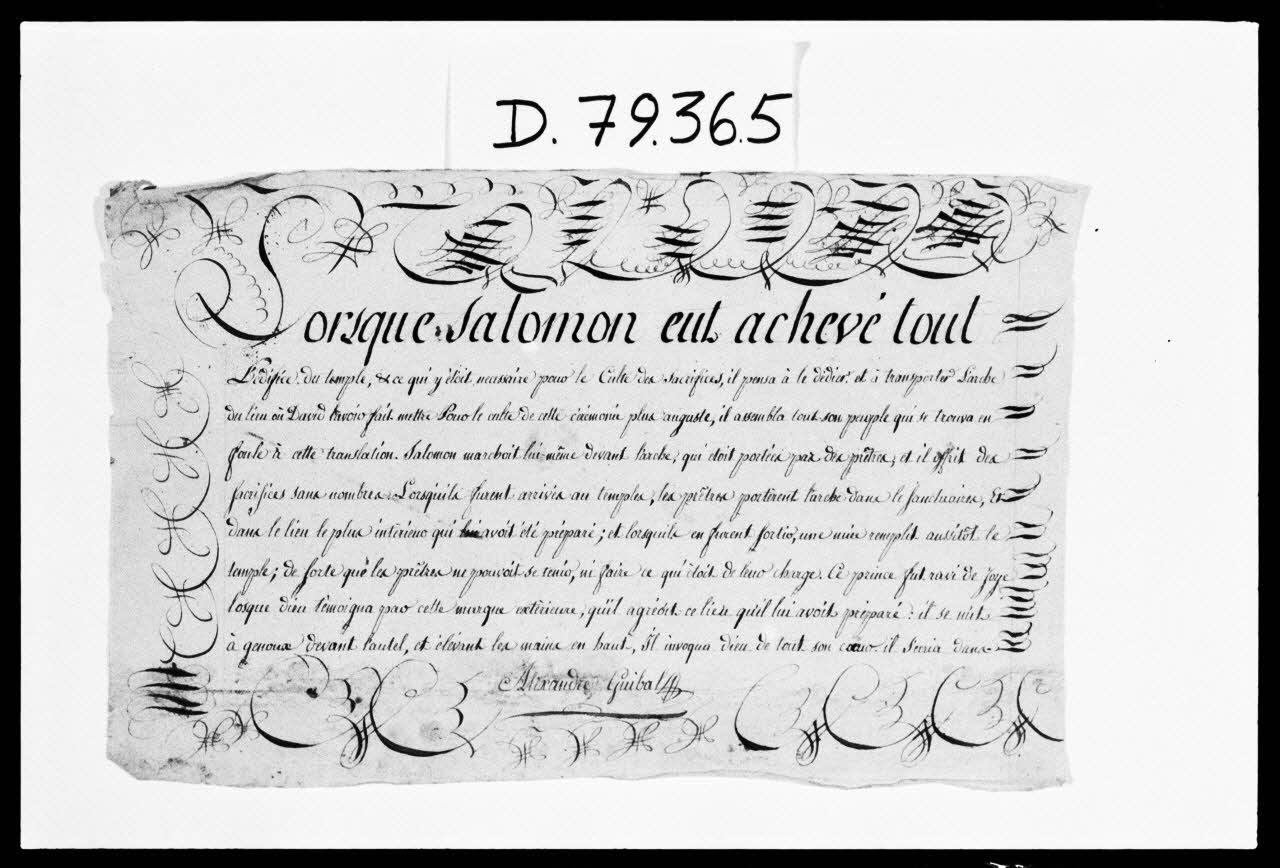 D. 79.36.5
Lorsque Salomon eut achevé tout
L'édifice du temple, & ce qui y étoit necessaire pour le Culte des Sacrifices, il pensa à le dédier et à transporter L'arche
du lieu où David l'avoit fait mettre Pour le culte de cette cérémonie plus auguste, il assembla tout son peuple qui se trouva en
foule à cette translation. Salomon marchoit lui-même devant l'arche, qui étoit portées par des prêtres, et il offrit des
sacrifices sans nombres. Lorsquils furent arrivés au temples, les prêtres portèrent l'arche dans le sanctuaires, Et
dans le lieu le plus interieur qui avoit été préparé; et lorsquils en furent sortis, une nuée remplit aussitôt le
temple; de sorte que les prêtres ne pouvoit se tenir, ni faire ce qui étoit de leur charge. Ce prince fut ravi de Joye
losque dieu témoigna par cette marque extérieure, qu'il agréoit ce lieu qu'il lui avoit préparé: il se mit
à genoux devant l'autel, et élévant les mains en haut, Il invoqua dieu de tout son cœur. il s'ecria dans
Alexandre Guibal